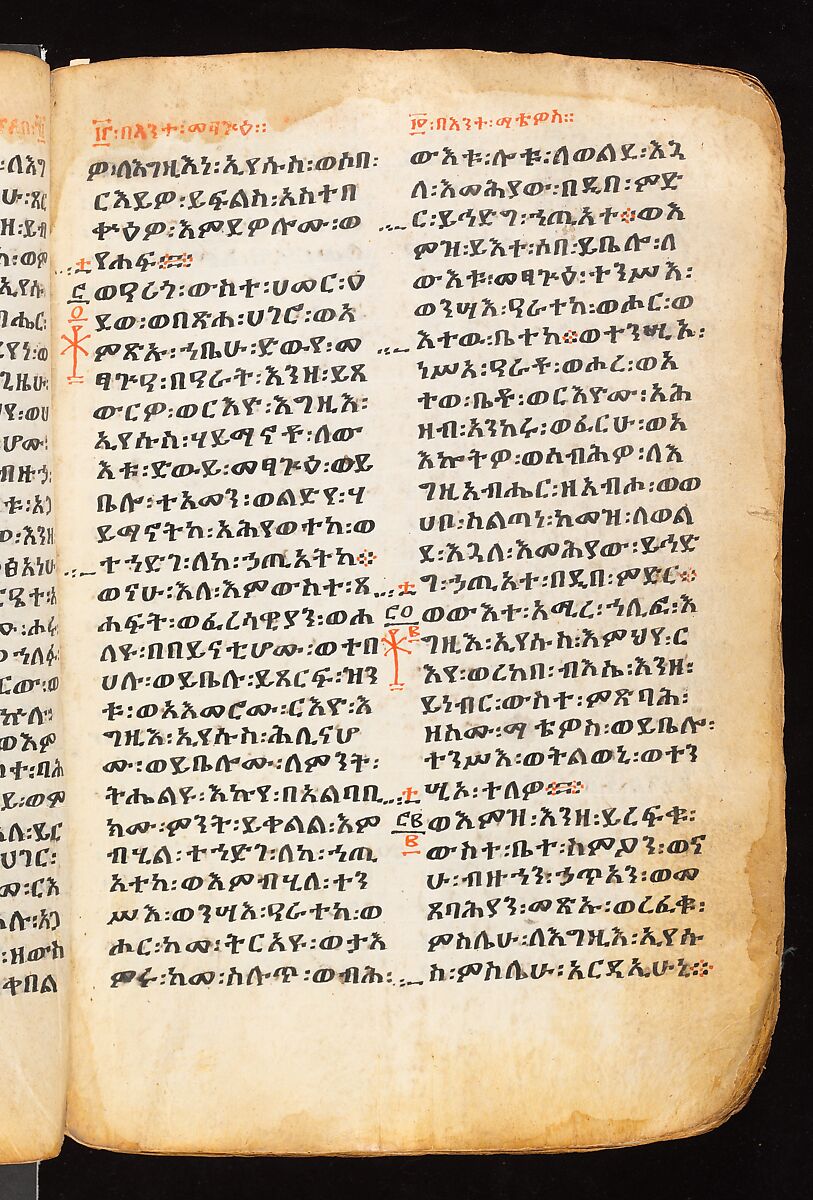 ፲፫፡በእንተ፡መፃጕዕ፡፡
ዎ፡ለእግዚእነ፡ኢየሱስ፡ወሶበ፡
ርእይዎ፡ይፍልስ፡አስተበ
ቍዕዎ፡እምደዎሎሙ፡ወ
የሐፍ፡፡
ወዓሪጎ፡ውስተ፡ሀመር፡ዕ
ደወ፡ወበጽሐ፡ሀገሮ፡ወአ
ምጽኡ፡ኀቤሁ፡ድውየ፡መ
ፃጕዓ፡በዓራት፡እንዘ፡ይጸ
ውርዎ፡ወርእዮ፡እግዚእ፡
ኢየሱስ፡ሃይማኖቶ፡ለው
እቱ፡ድውይ፡መፃጕዕ፡ወይ
ቤሎ፡ተአመን፡ወልድየ፡ሃ
ይማኖትከ፡አሕየወተከ፡ወ
ተኀድገ፡ለከ፡ኃጢአትከ።
ወናሁ፡እለ፡እምውስተ፡ጸ
ሐፍት፡ወፈረሳዊያን፡ወሐ
ለዩ፡በበይናቲሆሙ፡ወተበ
ሀሉ፡ወይቤሉ፡ይጸርፍ፡ዝን
ቱ፡ወአእመሮሙ፡ርእዮ፡እ
ግዚእ፡ኢየሱስ፡ሕሊናሆ
ሙ፡ወይቤሎሙ፡ለምንት፡
ትሔልዩ፡እኩየ፡በአልባቢ
ክሙ፡ምንት፡ይቀልል፡እም
ብሂል፡ተኀድገ፡ለከ፡ኀጢ
አትከ፡ወእምብሂለ፡ተን
ሥእ፡ወንሣእ፡ዓራተከ፡ወ
ሖር፡ከመ፡ትርአዩ፡ወታእ
ምሩ፡ከመ፡ስሉጥ፡ወብሕ፡
፲፬፡በእንተ፡ማቴዎስ፡፡
ውእቱ፡ሎቱ፡ለወልደ፡እጓ
ለ፡እመሕያው፡በዲበ፡ምድ
ር፡ይኅድግ፡ኀጢአተ።ወእ
ምዝ፡ይእተ፡ሶበ፡ይቤሎ፡ለ
ውእቱ፡መፃጕዕ፡ተንሥእ፡
ወንሣእ፡ዓራተከ፡ወሖር፡ወ
እተዉ፡ቤተከ።ወተንሢኦ፡
ነሥአ፡ዓራቶ፡ወሖረ፡ወአ
ተወ፡ቤቶ፡ወርእዮሙ፡አሕ
ዘብ፡አንከሩ፡ወፈርሁ፡ወአ
እኰትዎ፡ወሰብሕዎ፡ለእ
ግዚአብሔር፡ዘአብሖ፡ወወ
ሀቦ፡ስልጣነ፡ከመዝ፡ለወል
ደ፡እጓለ፡እመሕያው፡ይኅድ
ግ፡ኃጢአተ፡በዲበ፡ምድር።
ወውእተ፡አሚረ፡ኀሊፎ፡እ
ግዚእ፡ኢየሱስ፡እምህየ፡ር
እየ፡ወረከበ፡ብእሴ፡እንዘ፡
ይነብር፡ውስተ፡ምጽባሕ፡
ዘስሙ፡ማቴዎስ፡ወይቤሎ፡
ተንሥእ፡ወትልወኒ፡ወተን
ሢኦ፡ተለዎ፡፡
ወእምዝ፡እንዘ፡ይረፍቁ፡
ውስተ፡ቤተ፡ስምዖን፡ወና
ሁ፡ብዙኀን፡ኃጥአን፡ወመ
ጸባሕያን፡መጽኡ፡ወረፈቁ፡
ምስሌሁ፡ለእግዚእ፡ኢየሱ
ስ፡ምስሌሁ፡አርዳኢሁኒ።